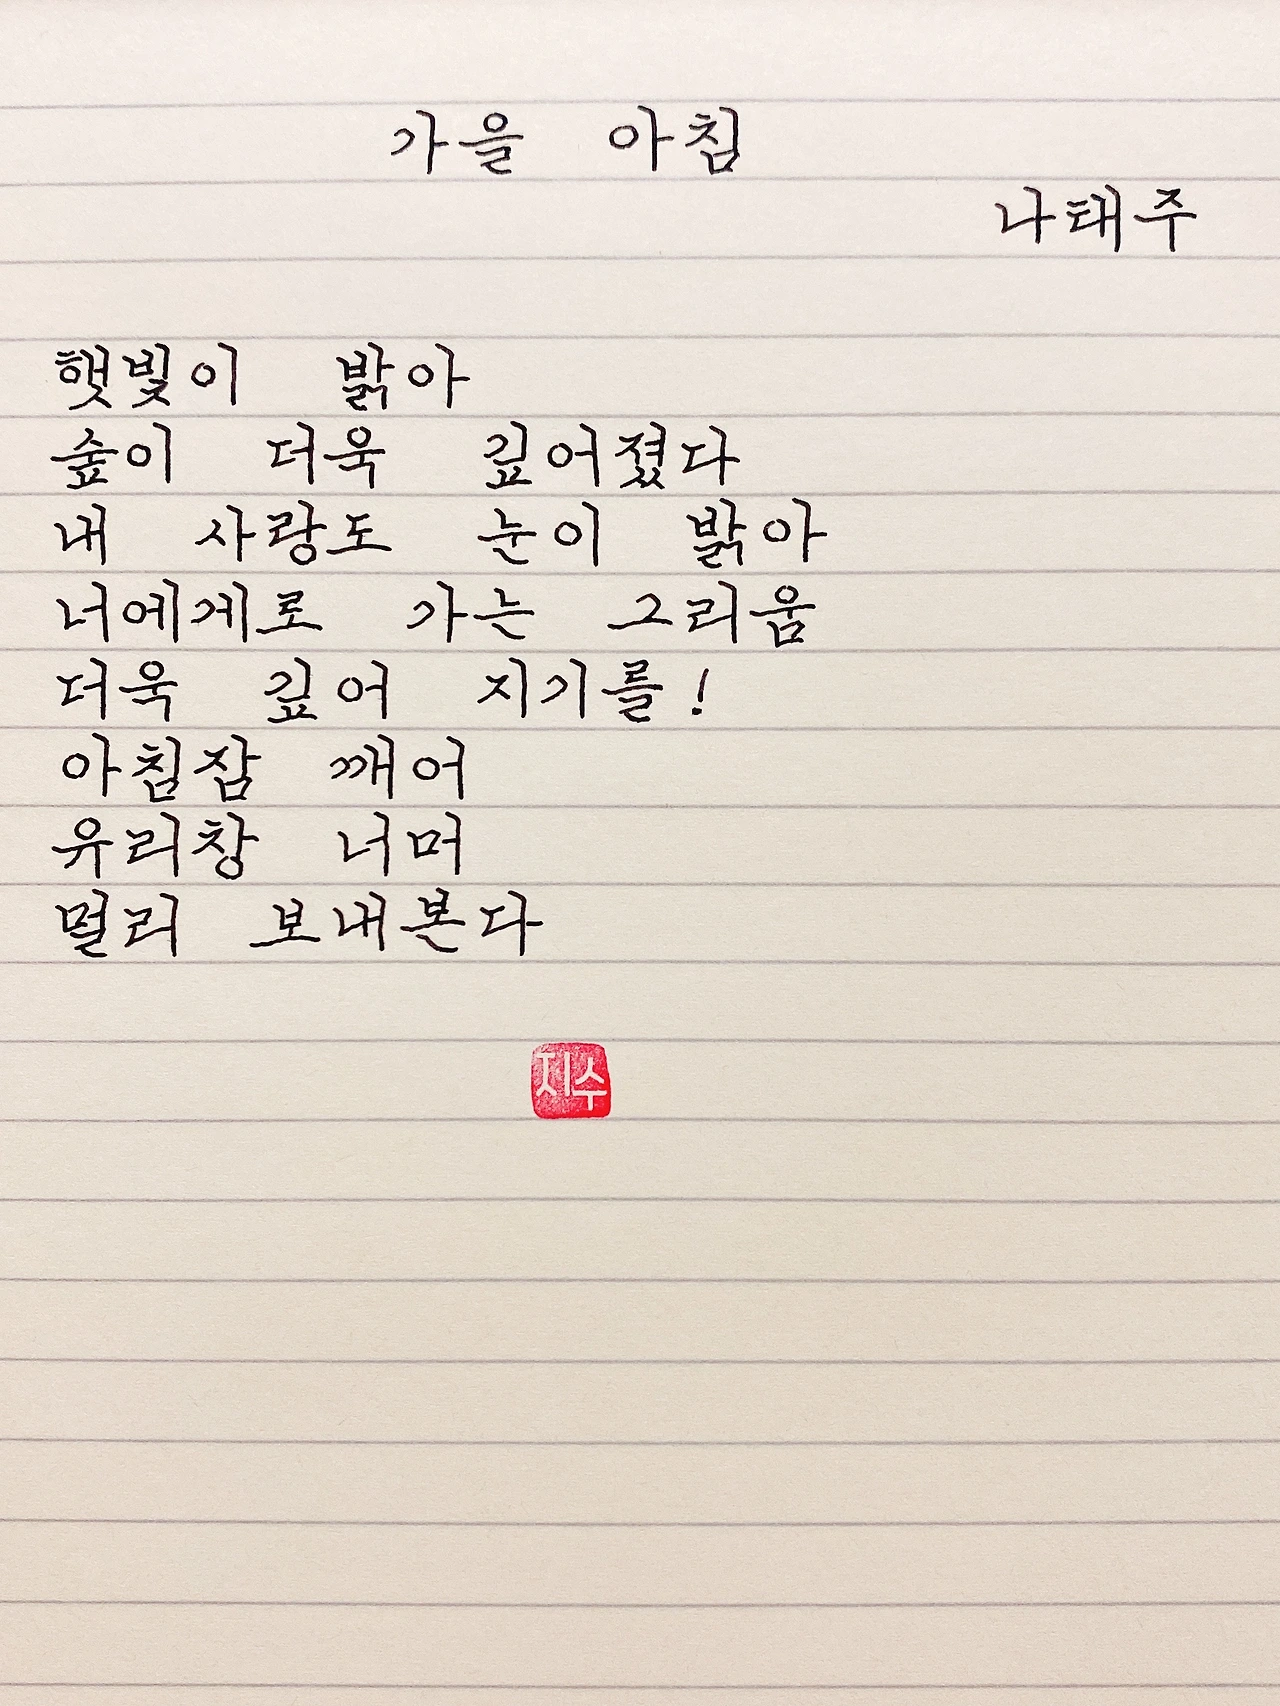 가을 아침
나태주
햇빛이 밝아
숲이 더욱 깊어졌다
내 사랑도 눈이 밝아
너에게로 가는 그리움
더욱 깊어 지기를!
아침잠 깨어
유리창 너머
멀리 보내본다
지수